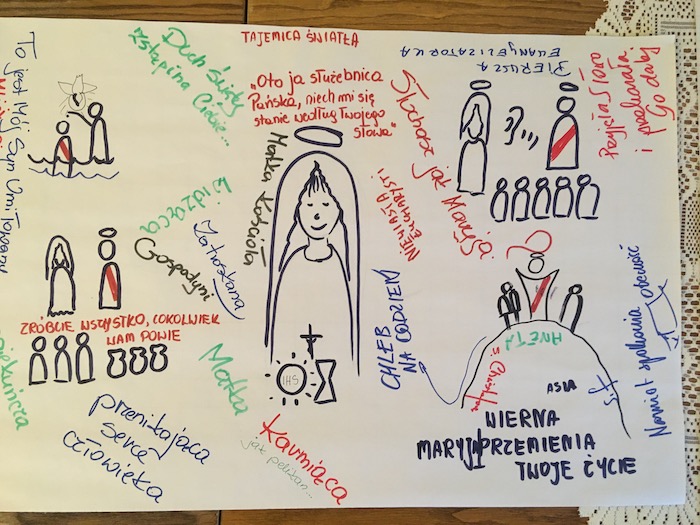 TAJEMICA ŚWIATŁA
To jest Mój Syn Umiłowany
Duch Święty
zstąpi na Ciebie...
„Oto ja służebnica
Pańska, niech mi się
stanie według Twojego
słowa"
Matka Kościoła
PIERWSZA
EWANGELIZATORKA
Przyjęła Słowo
i przekazała
Go dalej
Słuchać jak Maryja
NIEWIASTA
EUCHARYSTII
Widząca
Zatroskana
Gospodyni
ZRÓBCIE WSZYSTKO, COKOLWIEK
WAM POWIE
CHLEB
NA CODZIEŃ
Namiot spotkania obecność
Matka
IHS
ANETA
z Chrystusem
ASIA
SIŁ
przenikająca
serce
człowieka
Karmiąca
jak pelikan...
WIERNA
MARYJA PRZEMIENIA
TWOJE ŻYCIE